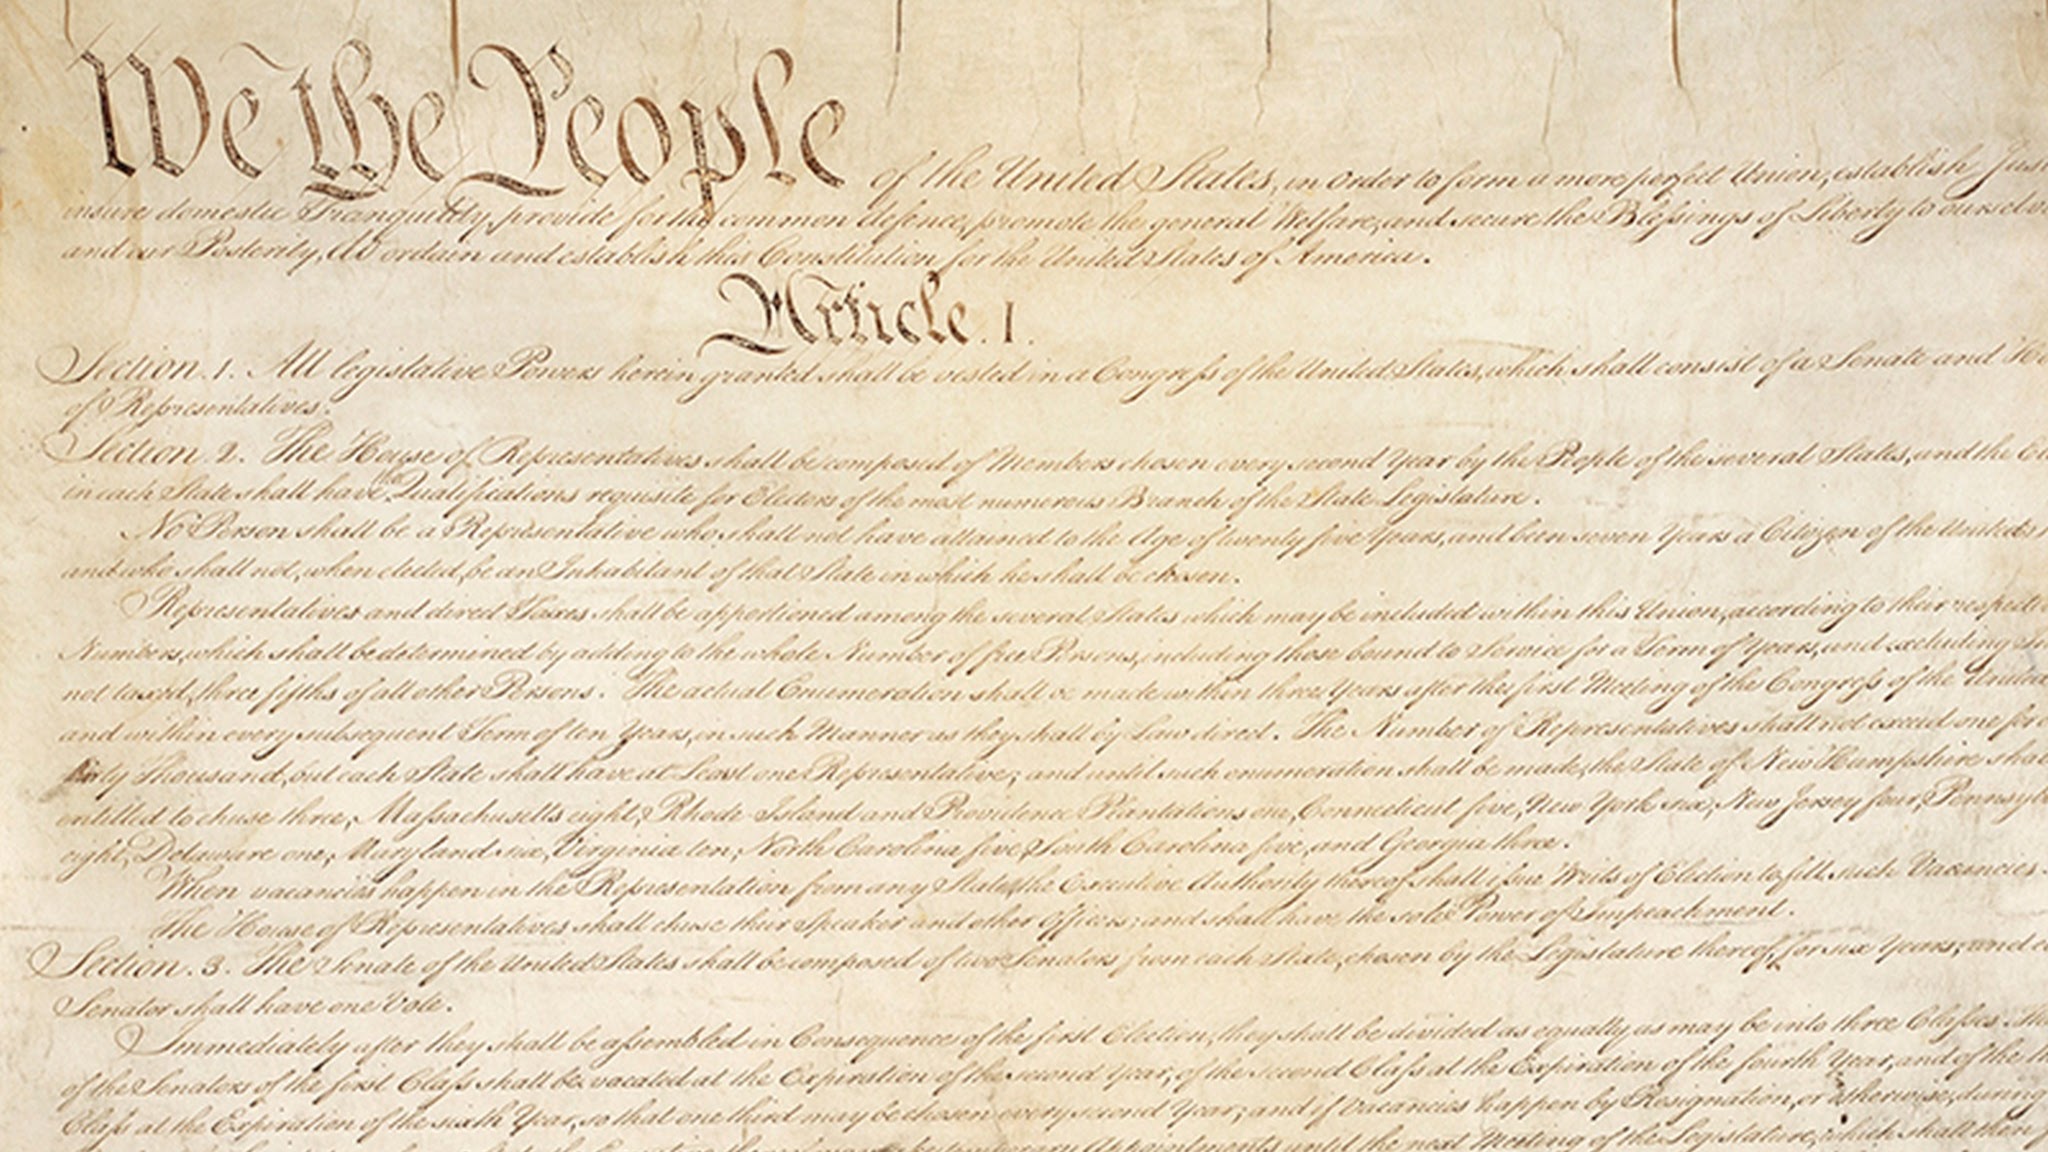 We the People of the United States, in Order to form a more perfect Union, establish Jus
insure domestic Tranquility, provide for the common defence, promote the general Welfare, and secure the Blessings of Liberty to ourselv
and our Posterity, do ordain and establish this Constitution for the United States of America.
Article. I.
Section. 1. All legislative Powers herein granted shall be vested in a Congress of the United States, which shall consist of a Senate and Ho
of Representatives.
Section. 2. The House of Representatives shall be composed of Members chosen every second Year by the People of the several States, and the El
in each State shall have the Qualifications requisite for Electors of the most numerous Branch of the State Legislature.
No Person shall be a Representative who shall not have attained to the Age of twenty five Years, and been seven Years a Citizen of the United S
and who shall not, when elected, be an Inhabitant of that State in which he shall be chosen.
Representatives and direct Taxes shall be apportioned among the several States which may be included within this Union, according to their respecti
Numbers, which shall be determined by adding to the whole Number of free Persons, including those bound to Service for a Term of Years, and excluding In
not taxed, three fifths of all other Persons. The actual Enumeration shall be made within three Years after the first Meeting of the Congress of the United
and within every subsequent Term of ten Years, in such Manner as they shall by Law direct. The Number of Representatives shall not exceed one for e
thirty Thousand, but each State shall have at Least one Representative; and until such enumeration shall be made, the State of New Hampshire shal
entitled to chuse three, Massachusetts eight, Rhode-Island and Providence Plantations one, Connecticut five, New-York six, New Jersey four, Pennsylv
eight, Delaware one, Maryland six, Virginia ten, North Carolina five, South Carolina five, and Georgia three.
When vacancies happen in the Representation from any State, the Executive Authority thereof shall issue Writs of Election to fill such Vacancies.
The House of Representatives shall chuse their Speaker and other Officers; and shall have the sole Power of Impeachment.
Section. 3. The Senate of the United States shall be composed of two Senators from each State, chosen by the Legislature thereof, for six Years; and e
Senator shall have one Vote.
Immediately after they shall be assembled in Consequence of the first Election, they shall be divided as equally as may be into three Classes. The
of the Senators of the first Class shall be vacated at the Expiration of the second Year, of the second Class at the Expiration of the fourth Year, and of the th
Class at the Expiration of the sixth Year, so that one third may be chosen every second Year; and if Vacancies happen by Resignation, or otherwise, during
temporary Appointments until the next Meeting of the Legislature, which shall then f